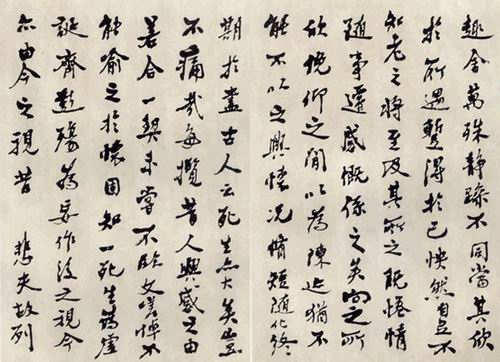 趣舍萬殊静躁不同當其欣
於所遇暫得於己怏然自足不
知老之將至及其所之既惓情
隨事遷感慨係之矣向之所
欣俛仰之間以為陳迹猶不
能不以之興懷況脩短隨化終
期於盡古人云死生亦大矣豈
不痛哉每攬昔人興感之由
若合一契未嘗不臨文嗟悼不
能喻之於懷固知一死生為虛
誕齊彭殤為妄作後之視今
亦由今之視昔 悲夫故列